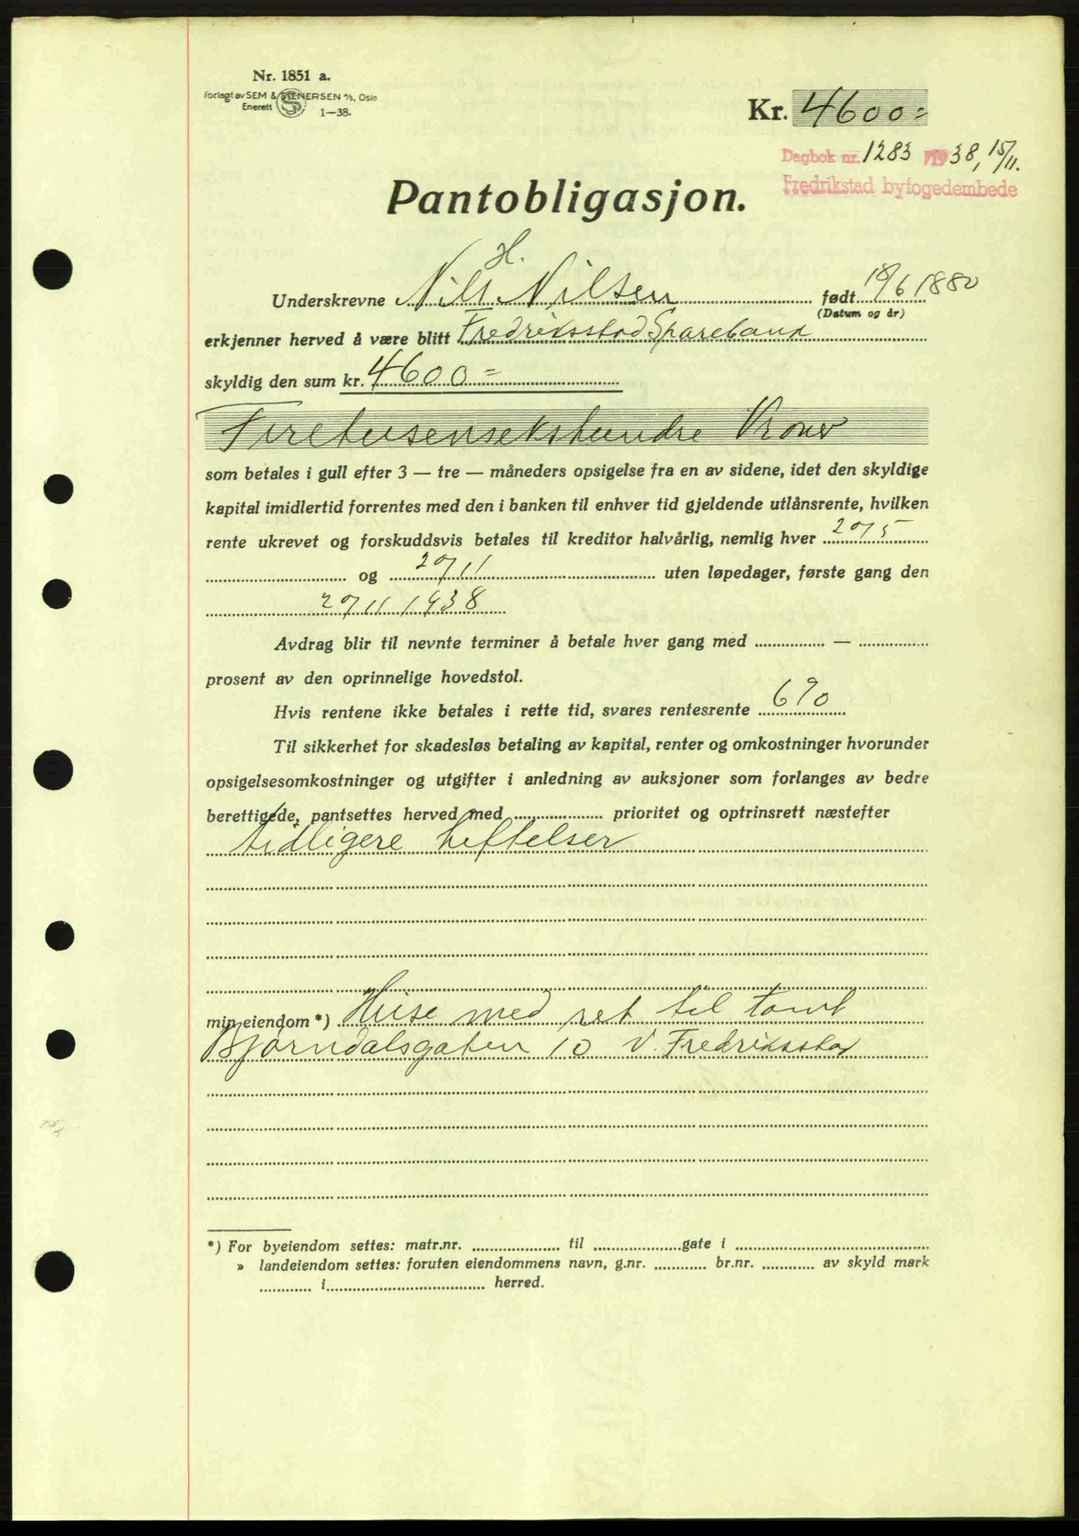 Nr. 1851 a.
Forlagt av SEM & STENERSEN A/S, Oslo
Enerett
1—38.
Kr. 4600=
Dagbok nr. 1283 1938, 15/11.
Fredrikstad byfogedembede
Pantobligasjon.
H.
Underskrevne Nils Nilsen født 18/6 1880
(Datum og år)
erkjenner herved å være blitt Fredriksstad Sparebank
skyldig den sum kr. 4600=
Firetusensekshundre Kroner
som betales i gull efter 3 — tre — måneders opsigelse fra en av sidene, idet den skyldige
kapital imidlertid forrentes med den i banken til enhver tid gjeldende utlånsrente, hvilken
rente ukrevet og forskuddsvis betales til kreditor halvårlig, nemlig hver 20/5
og 20/11 uten løpedager, første gang den
20/11 1938
Avdrag blir til nevnte terminer å betale hver gang med —
prosent av den oprinnelige hovedstol.
Hvis rentene ikke betales i rette tid, svares rentesrente 6%
Til sikkerhet for skadesløs betaling av kapital, renter og omkostninger hvorunder
opsigelsesomkostninger og utgifter i anledning av auksjoner som forlanges av bedre
berettigede, pantsettes herved med prioritet og optrinsrett næstefter
tidligere heftelser
min eiendom *) Huse med ret til tomt
Bjørndalsgaten 10 v. Fredriksstad
*) For byeiendom settes: matr.nr. til gate i
» landeiendom settes: foruten eiendommens navn, g.nr. br.nr. av skyld mark
i herred.